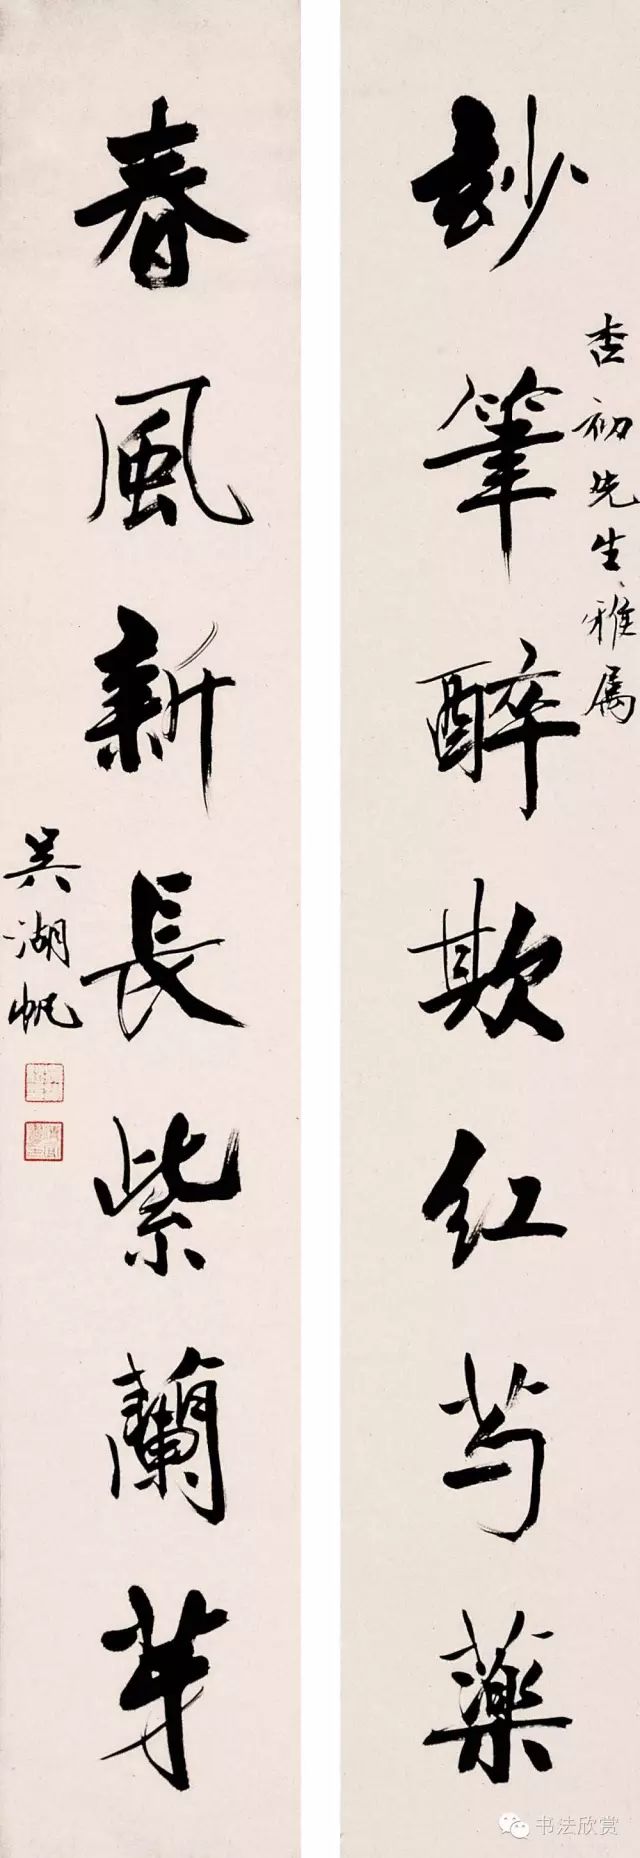 杏初先生雅属
玅筆醉欺红芍藥
春風新長紫蘭芽
吳湖帆
书法欣赏